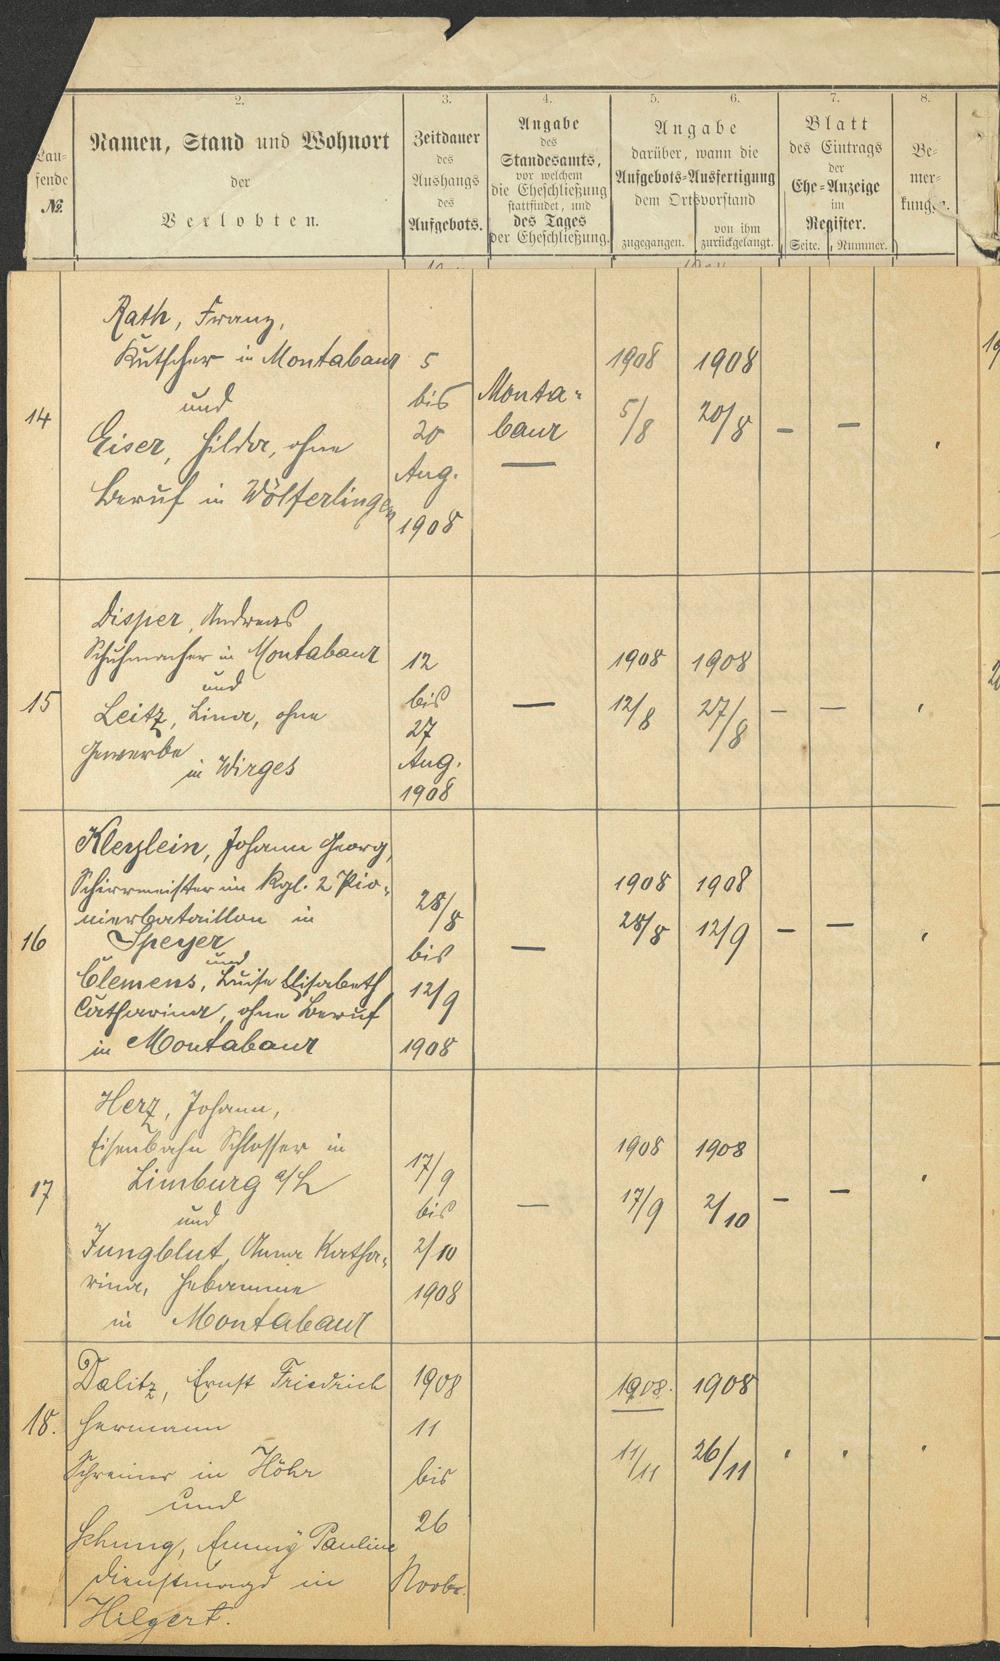 2.
3.
4.
5.
6.
7.
8.
Lau-
fende
№.
Namen, Stand und Wohnort
der
Verlobten.
Zeitdauer
des
Aushangs
des
Aufgebots.
Angabe
des
Standesamts,
vor welchem
die Eheschließung
stattfindet, und
des Tages
der Eheschließung.
Angabe
darüber, wann die
Aufgebots-Ausfertigung
dem Ortsvorstand
zugegangen.
von ihm
zurückgelangt.
Blatt
des Eintrags
der
Ehe-Anzeige
im
Register.
Seite.
Nummer.
Be-
mer-
kungen.
14
Rath, Franz,
Kutscher in Montabaur
und
Eiser, Hilda, ohne
Beruf in Wölferlingen
5
bis
20
Aug.
1908
Monta-
baur
—
1908
5/8
1908
20/8
–
–
15
Disper, Andreas
Schuhmacher in Montabaur
und
Leitz, Lina, ohne
Gewerbe
in Wirges
12
bis
27
Aug.
1908
—
1908
12/8
1908
27/8
–
–
16
Kleylein, Johann Georg,
Schirrmeister im Kgl. 2 Pio-
nierbataillon in
Speyer
und
Clemens, Luise Elisabeth
Catharina, ohne Beruf
in Montabaur
28/8
bis
12/9
1908
—
1908
28/8
1908
12/9
–
–
17
Herz, Johann,
Eisenbahn Schlosser in
Limburg a/L
und
Jungblut, Anna Katha-
rina, Hebamme
in Montabaur
17/9
bis
2/10
1908
—
1908
17/9
1908
2/10
–
–
18.
Dalitz, Ernst Friedrich
Hermann
Schreiner in Höhr
und
Schung, Emmy Pauline
Dienstmagd in
Hilgert.
1908
11
bis
26
Novbr.
1908.
11/11
1908
26/11